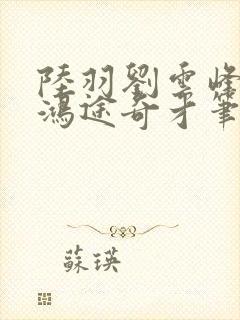 陸羽劉雲峰
鴻途奇才筆
蘇瑛